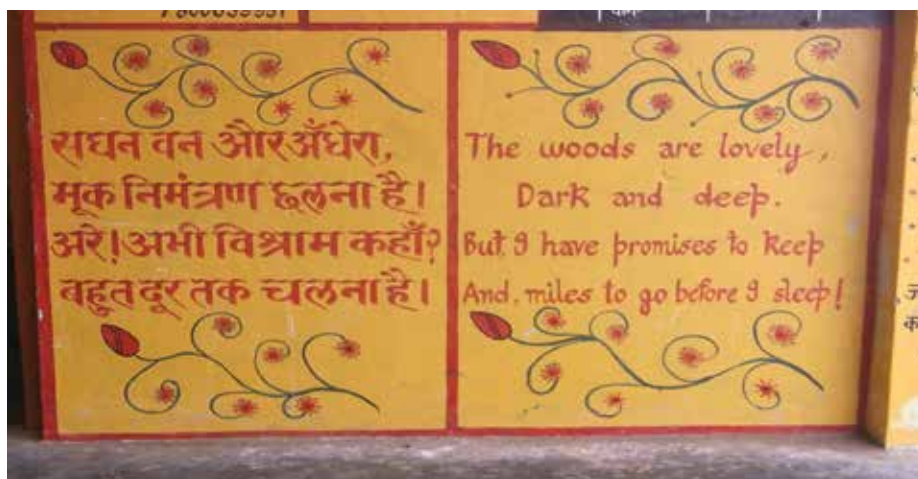 सघन वन और अँधेरा,
मूक निमंत्रण छलना है।
अरे! अभी विश्राम कहाँ?
बहुत दूर तक चलना है।
The woods are lovely,
Dark and deep.
But I have promises to keep
And, miles to go before I sleep!